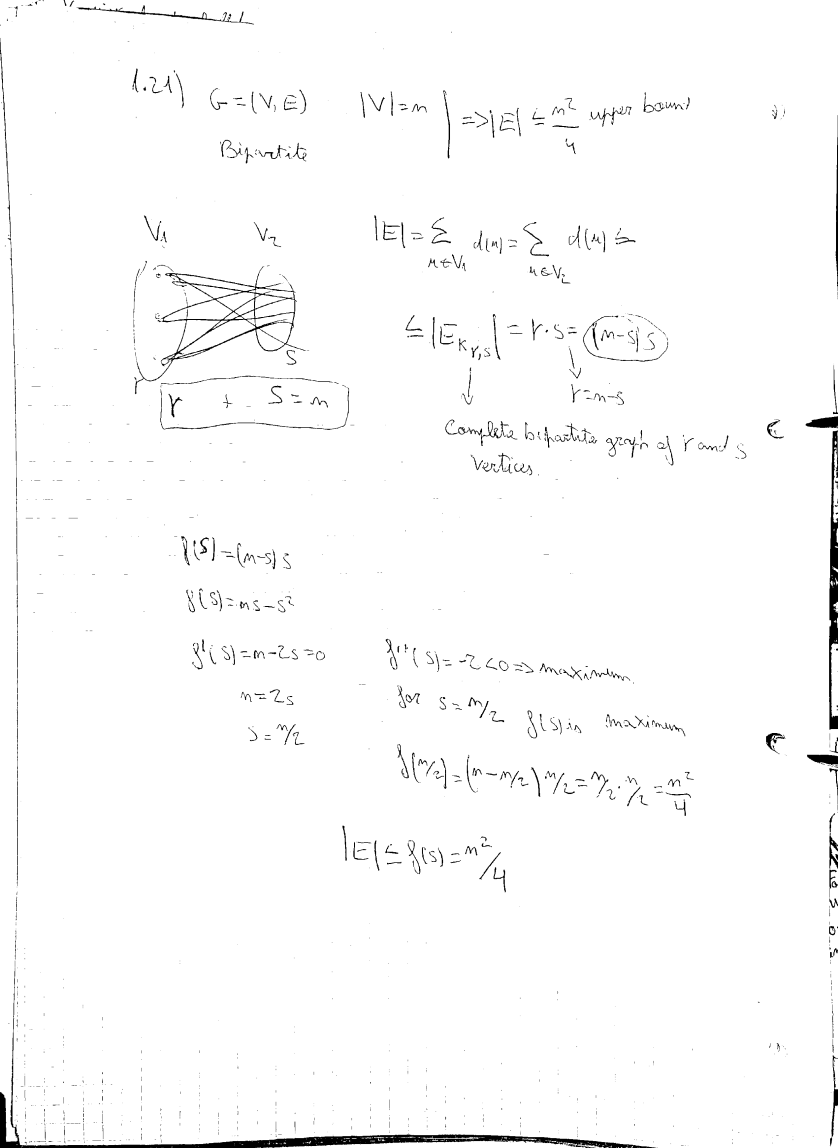 1.21) G=(V, E) |V|=n | => |E| ≤ n²/4 upper bound
Bipartite
V₁ V₂
|E| = Σ_{u∈V₁} d(u) = Σ_{u∈V₂} d(u) ≤
≤ |E_{K_{r,s}}| = r·s = (n-s)s
r = n-s
Complete bipartite graph of r and s
vertices.
r s
r + s = n
f(s) = (n-s)s
f(s) = ns-s²
f'(s) = n-2s = 0
n = 2s
s = n/2
f''(s) = -2 < 0 => maximum.
for s = n/2 f(s) is maximum
f(n/2) = (n-n/2) n/2 = n/2 · n/2 = n²/4
|E| ≤ f(s) = n²/4